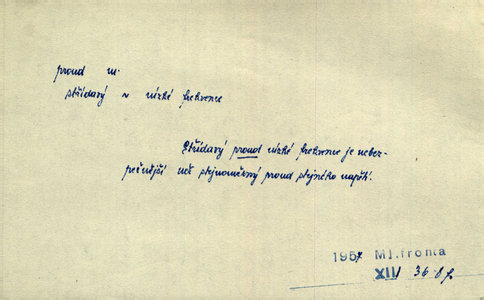 proud m.
střídavý v nízké frekvence
Střídavý proud nízké frekvence je nebez-
pečnější než stejnoměrný proud stejného napětí.
1957 Ml.fronta
XII/ 36